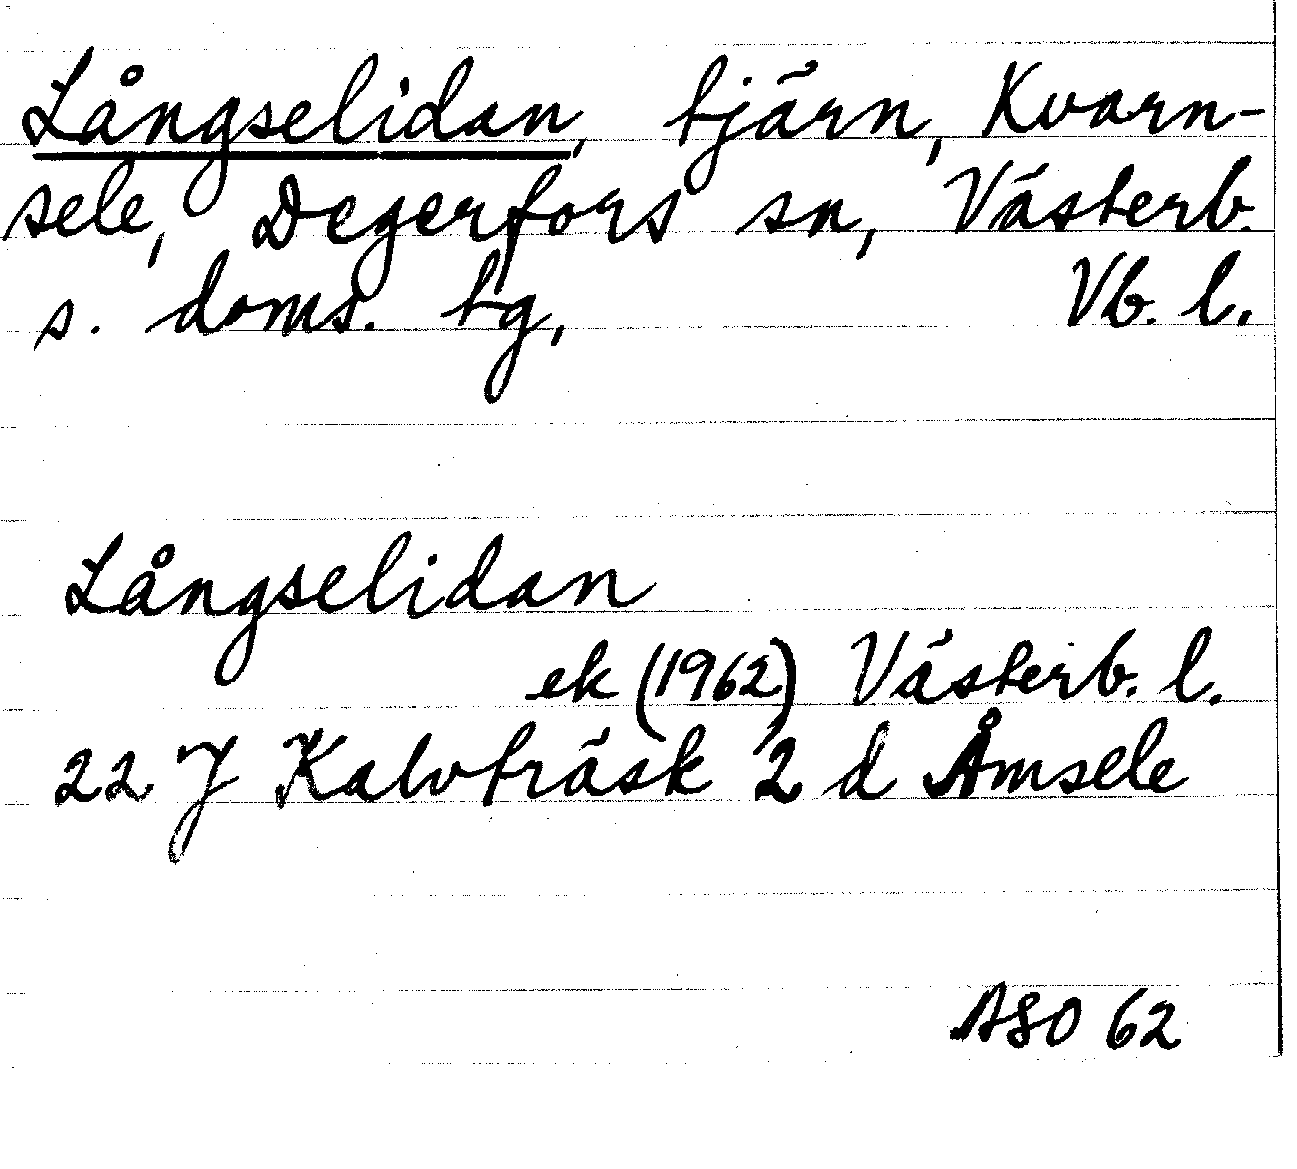 Långselidan, tjärn, Kvarn-
sele, Degerfors sn, Västerb.
s. doms. tg, Vb. l.
Långselidan
ek (1962) Västerb. l.
22 J Kalvträsk 2 d Åmsele
ASO 62